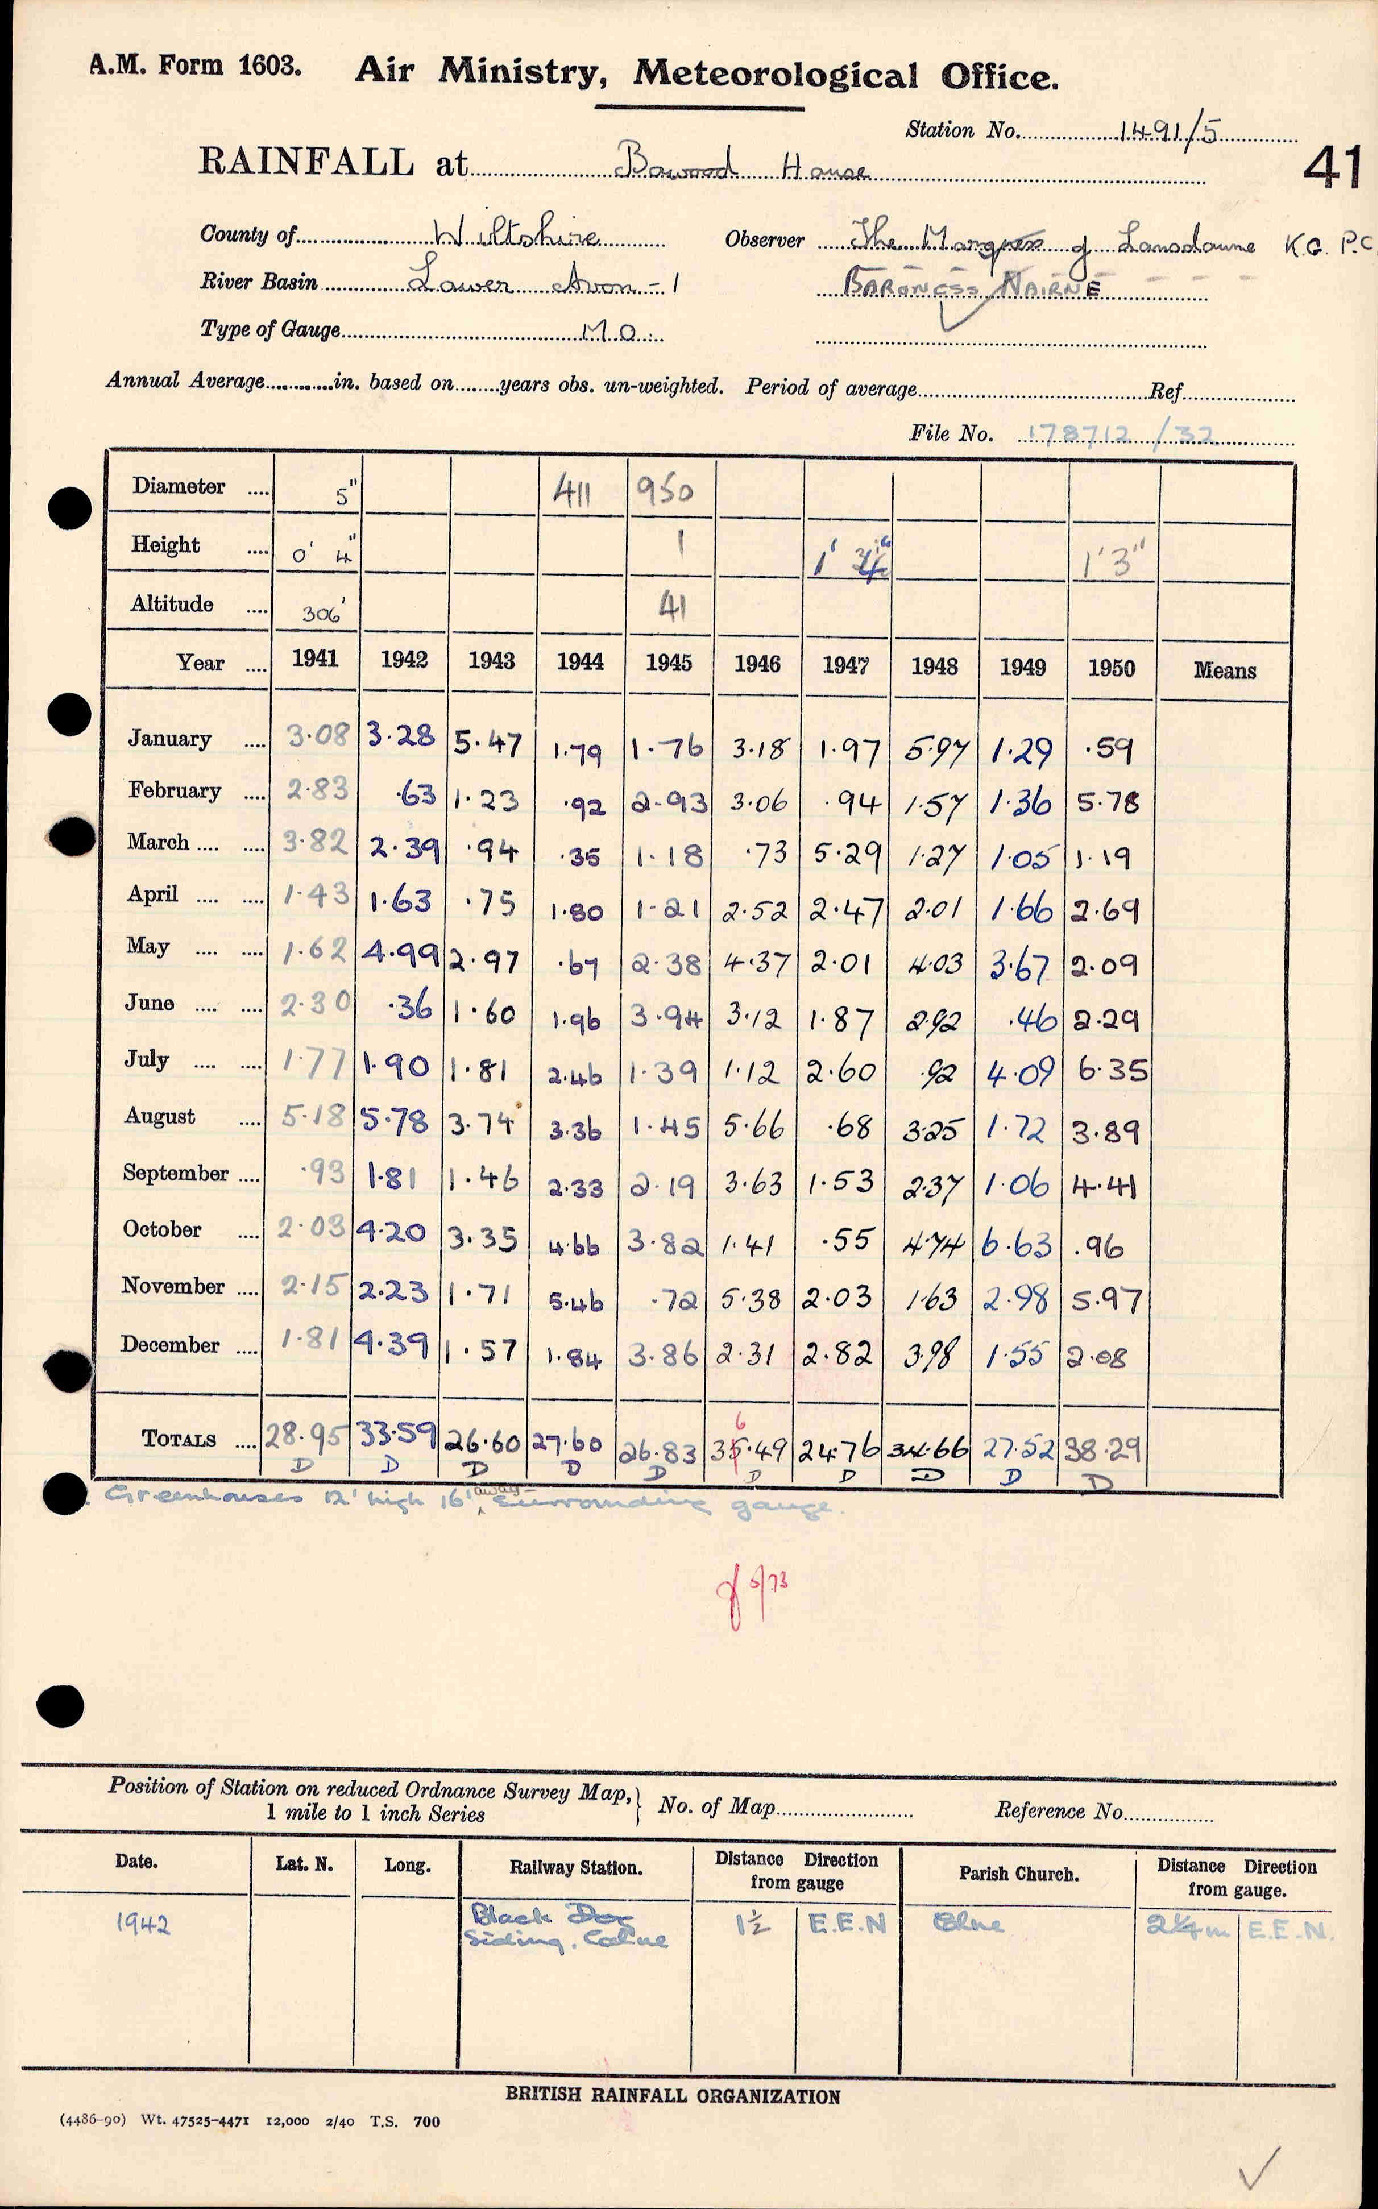 A.M. Form 1603. Air Ministry, Meteorological Office.
Station No. 1491/5
RAINFALL at Bowood House
41
County of Wiltshire Observer The Marquess of Lansdowne K.G. P.C.
River Basin Lower Avon - 1 BARONESS NAIRNE
Type of Gauge M.O.
Annual Average in. based on years obs. un-weighted. Period of average Ref
File No. 178712 /32
Diameter 5" 411 950
Height 0' 4" 1 1' 1'3"
Altitude 306' 41
Year 1941 1942 1943 1944 1945 1946 1947 1948 1949 1950 Means
January 3.08 3.28 5.47 1.79 1.76 3.18 1.97 5.97 1.29 .59
February 2.83 .63 1.23 .92 2.93 3.06 .94 1.57 1.36 5.78
March 3.82 2.39 .94 .35 1.18 .73 5.29 1.27 1.05 1.19
April 1.43 1.63 .75 1.80 1.21 2.52 2.47 2.01 1.66 2.69
May 1.62 4.99 2.97 .67 2.38 4.37 2.01 4.03 3.67 2.09
June 2.30 .36 1.60 1.96 3.94 3.12 1.87 2.92 .46 2.29
July 1.77 1.90 1.81 2.46 1.39 1.12 2.60 .92 4.09 6.35
August 5.18 5.78 3.74 3.36 1.45 5.66 .68 3.25 1.72 3.89
September .93 1.81 1.46 2.33 2.19 3.63 1.53 2.37 1.06 4.41
October 2.03 4.20 3.35 4.66 3.82 1.41 .55 4.74 6.63 .96
November 2.15 2.23 1.71 5.46 .72 5.38 2.03 1.63 2.98 5.97
December 1.81 4.39 1.57 1.84 3.86 2.31 2.82 3.98 1.55 2.08
6
TOTALS 28.95 33.59 26.60 27.60 26.83 35.49 24.76 34.66 27.52 38.29
D D D D D D D D D D
Greenhouses 12' high 16' away surrounding gauge.
5/73
Position of Station on reduced Ordnance Survey Map, 1 mile to 1 inch Series } No. of Map Reference No
Date. Lat. N. Long. Railway Station. Distance Direction from gauge Parish Church. Distance Direction from gauge.
1942 Black Dog 1½ E.E.N 2¼ m E.E.N.
Siding. Calne
BRITISH RAINFALL ORGANIZATION
(4486-90) Wt. 47525-4471 12,000 2/40 T.S. 700